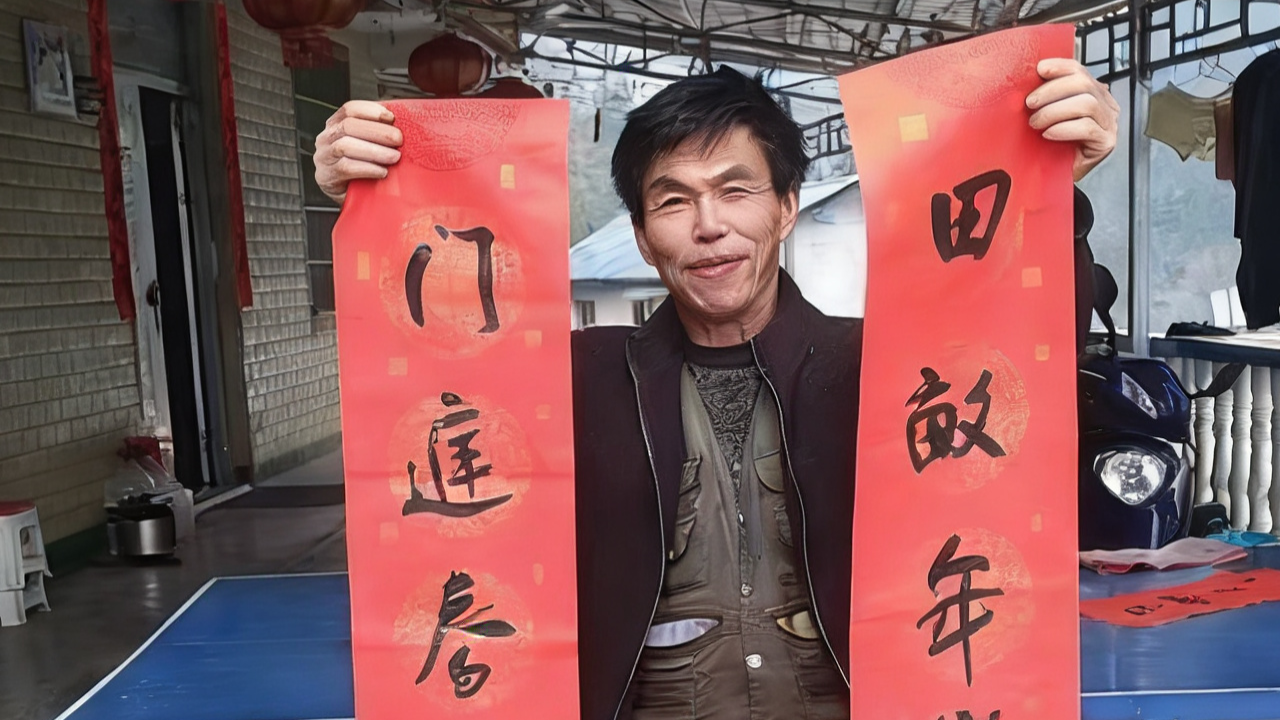 门庭春
田畝年